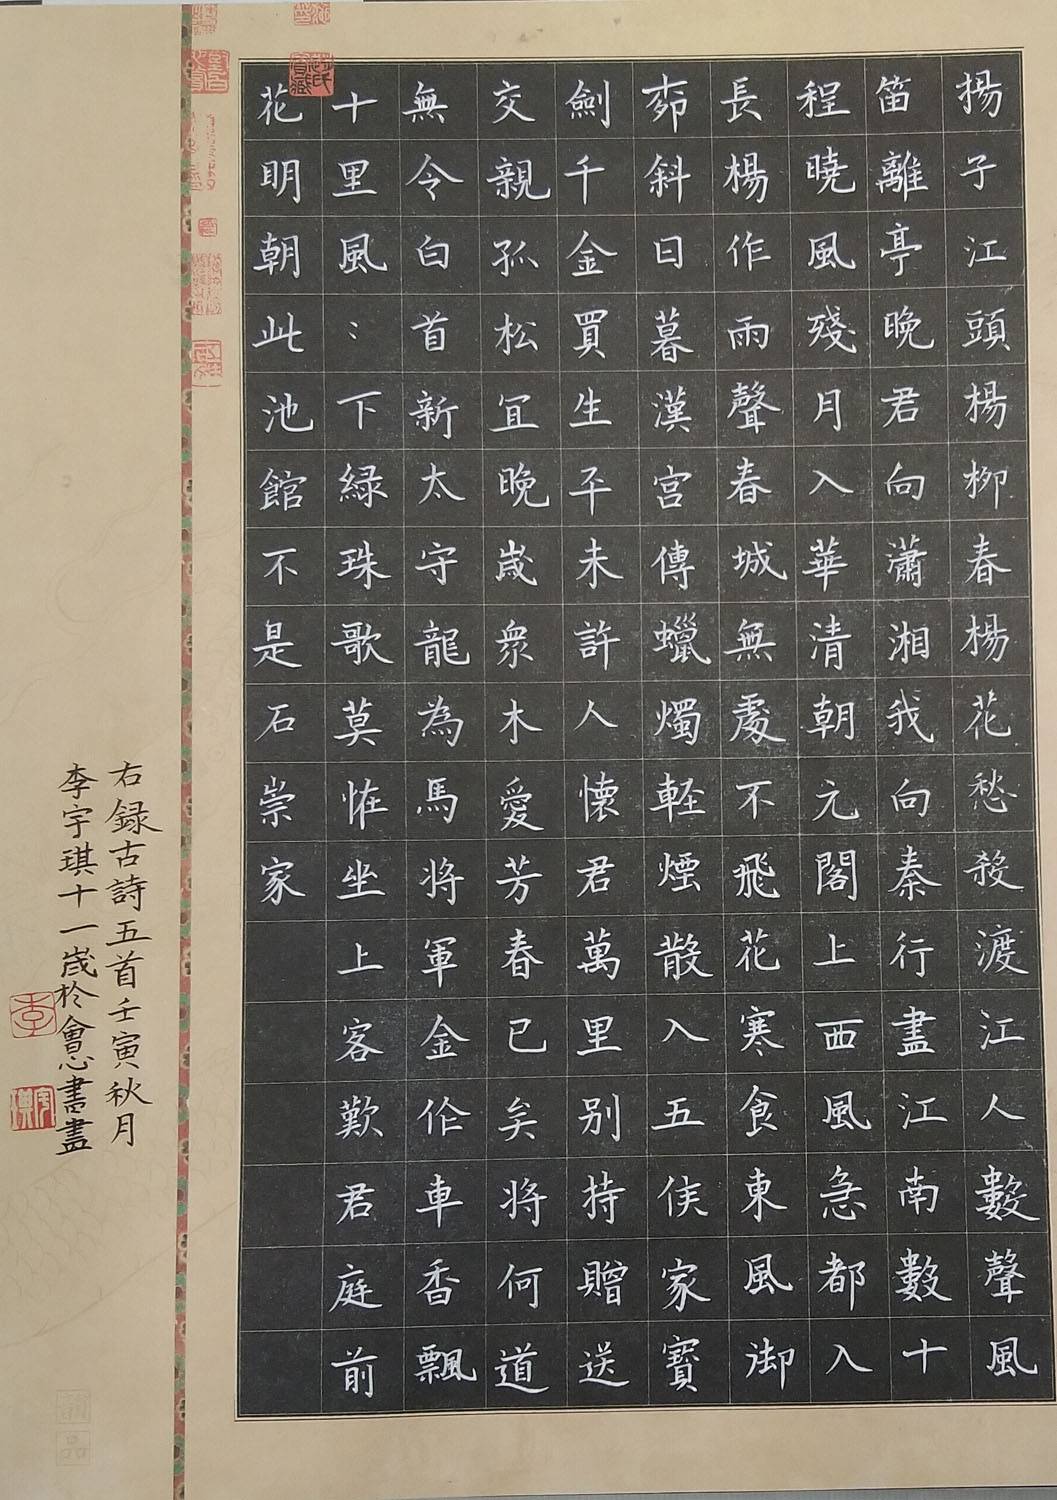 揚子江頭楊柳春楊花愁殺渡江人數聲風
笛離亭晚君向瀟湘我向秦行盡江南數十
程曉風殘月入華清朝元閣上西風急都入
長楊作雨聲春城無處不飛花寒食東風御
柳斜日暮漢宮傳蠟燭輕煙散入五侯家寶
劍千金買生平未許人懷君萬里別持贈送
交親孤松宜晚歲衆木愛芳春已矣將何道
無令白首新太守龍為馬將軍金作車香飄
十里風：下綠珠歌莫怪坐上客歎君庭前
花明朝此池館不是石崇家
右録古詩五首壬寅秋月
李宇琪十一歲於會心書畫